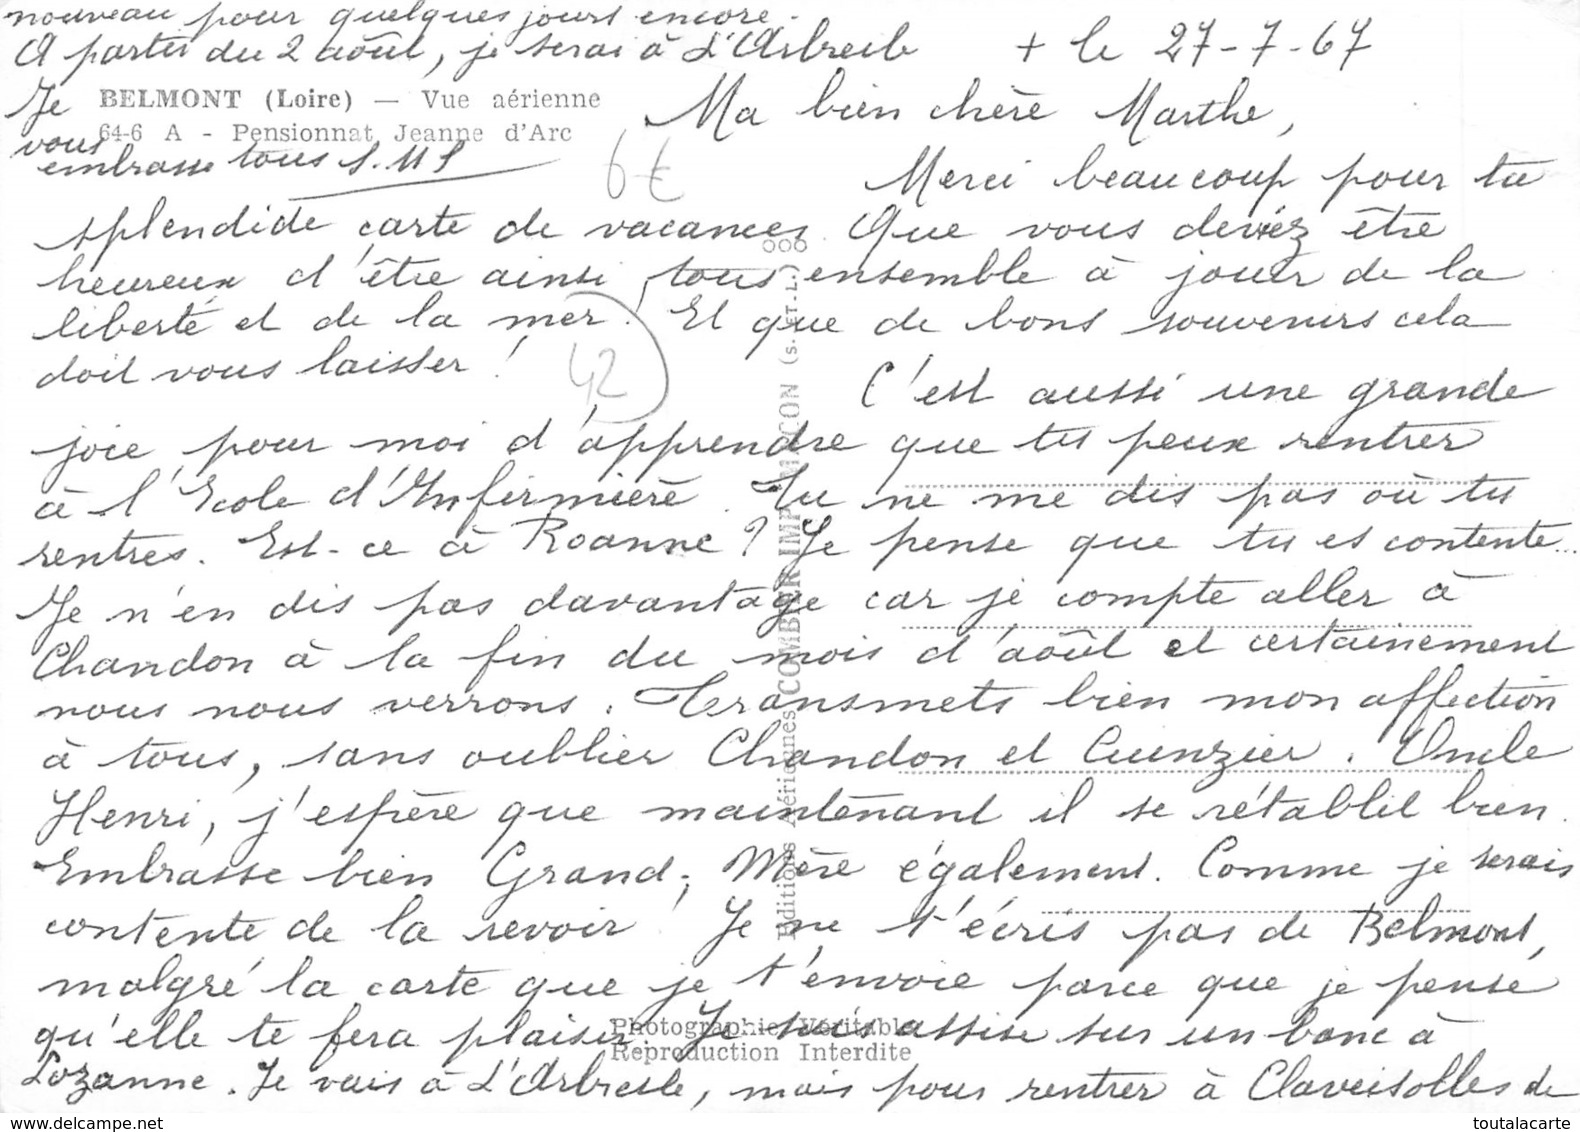 + le 27-7-67
Ma bien chère Marthe,
Merci beaucoup pour ta
splendide carte de vacances. Que vous deviez être
heureux d'être ainsi tous ensemble à jouir de la
liberté et de la mer ! Et que de bons souvenirs cela
doit vous laisser !
C'est aussi une grande
joie pour moi d'apprendre que tu peux rentrer
à l'Ecole d'Infirmière. Tu ne me dis pas où tu
rentres. Est-ce à Roanne ? Je pense que tu es contente...
Je n'en dis pas davantage car je compte aller à
Chandon à la fin du mois d'août et certainement
nous nous verrons. Transmets bien mon affection
à tous, sans oublier Chandon et Cuinzier. Oncle
Henri, j'espère que maintenant il se rétablit bien.
Embrasse bien Grand-Mère également. Comme je serais
contente de la revoir ! Je ne t'écris pas de Belmont,
malgré la carte que je t'envoie parce que je pense
qu'elle te fera plaisir. Je suis assise sur un banc à
Lozanne. Je vais à L'Arbresle, mais pour rentrer à Claveisolles de
nouveau pour quelques jours encore.
A partir du 2 août, je serai à L'Arbresle
Je
vous
embrasse tous S. M S
BELMONT (Loire) — Vue aérienne
64-6 A - Pensionnat Jeanne d'Arc
6€
42
Editions Aériennes COMBIER IMP. MACON (S.-ET-L.)
Photographie Véritable
Reproduction Interdite
toutalacarte
www.delcampe.net